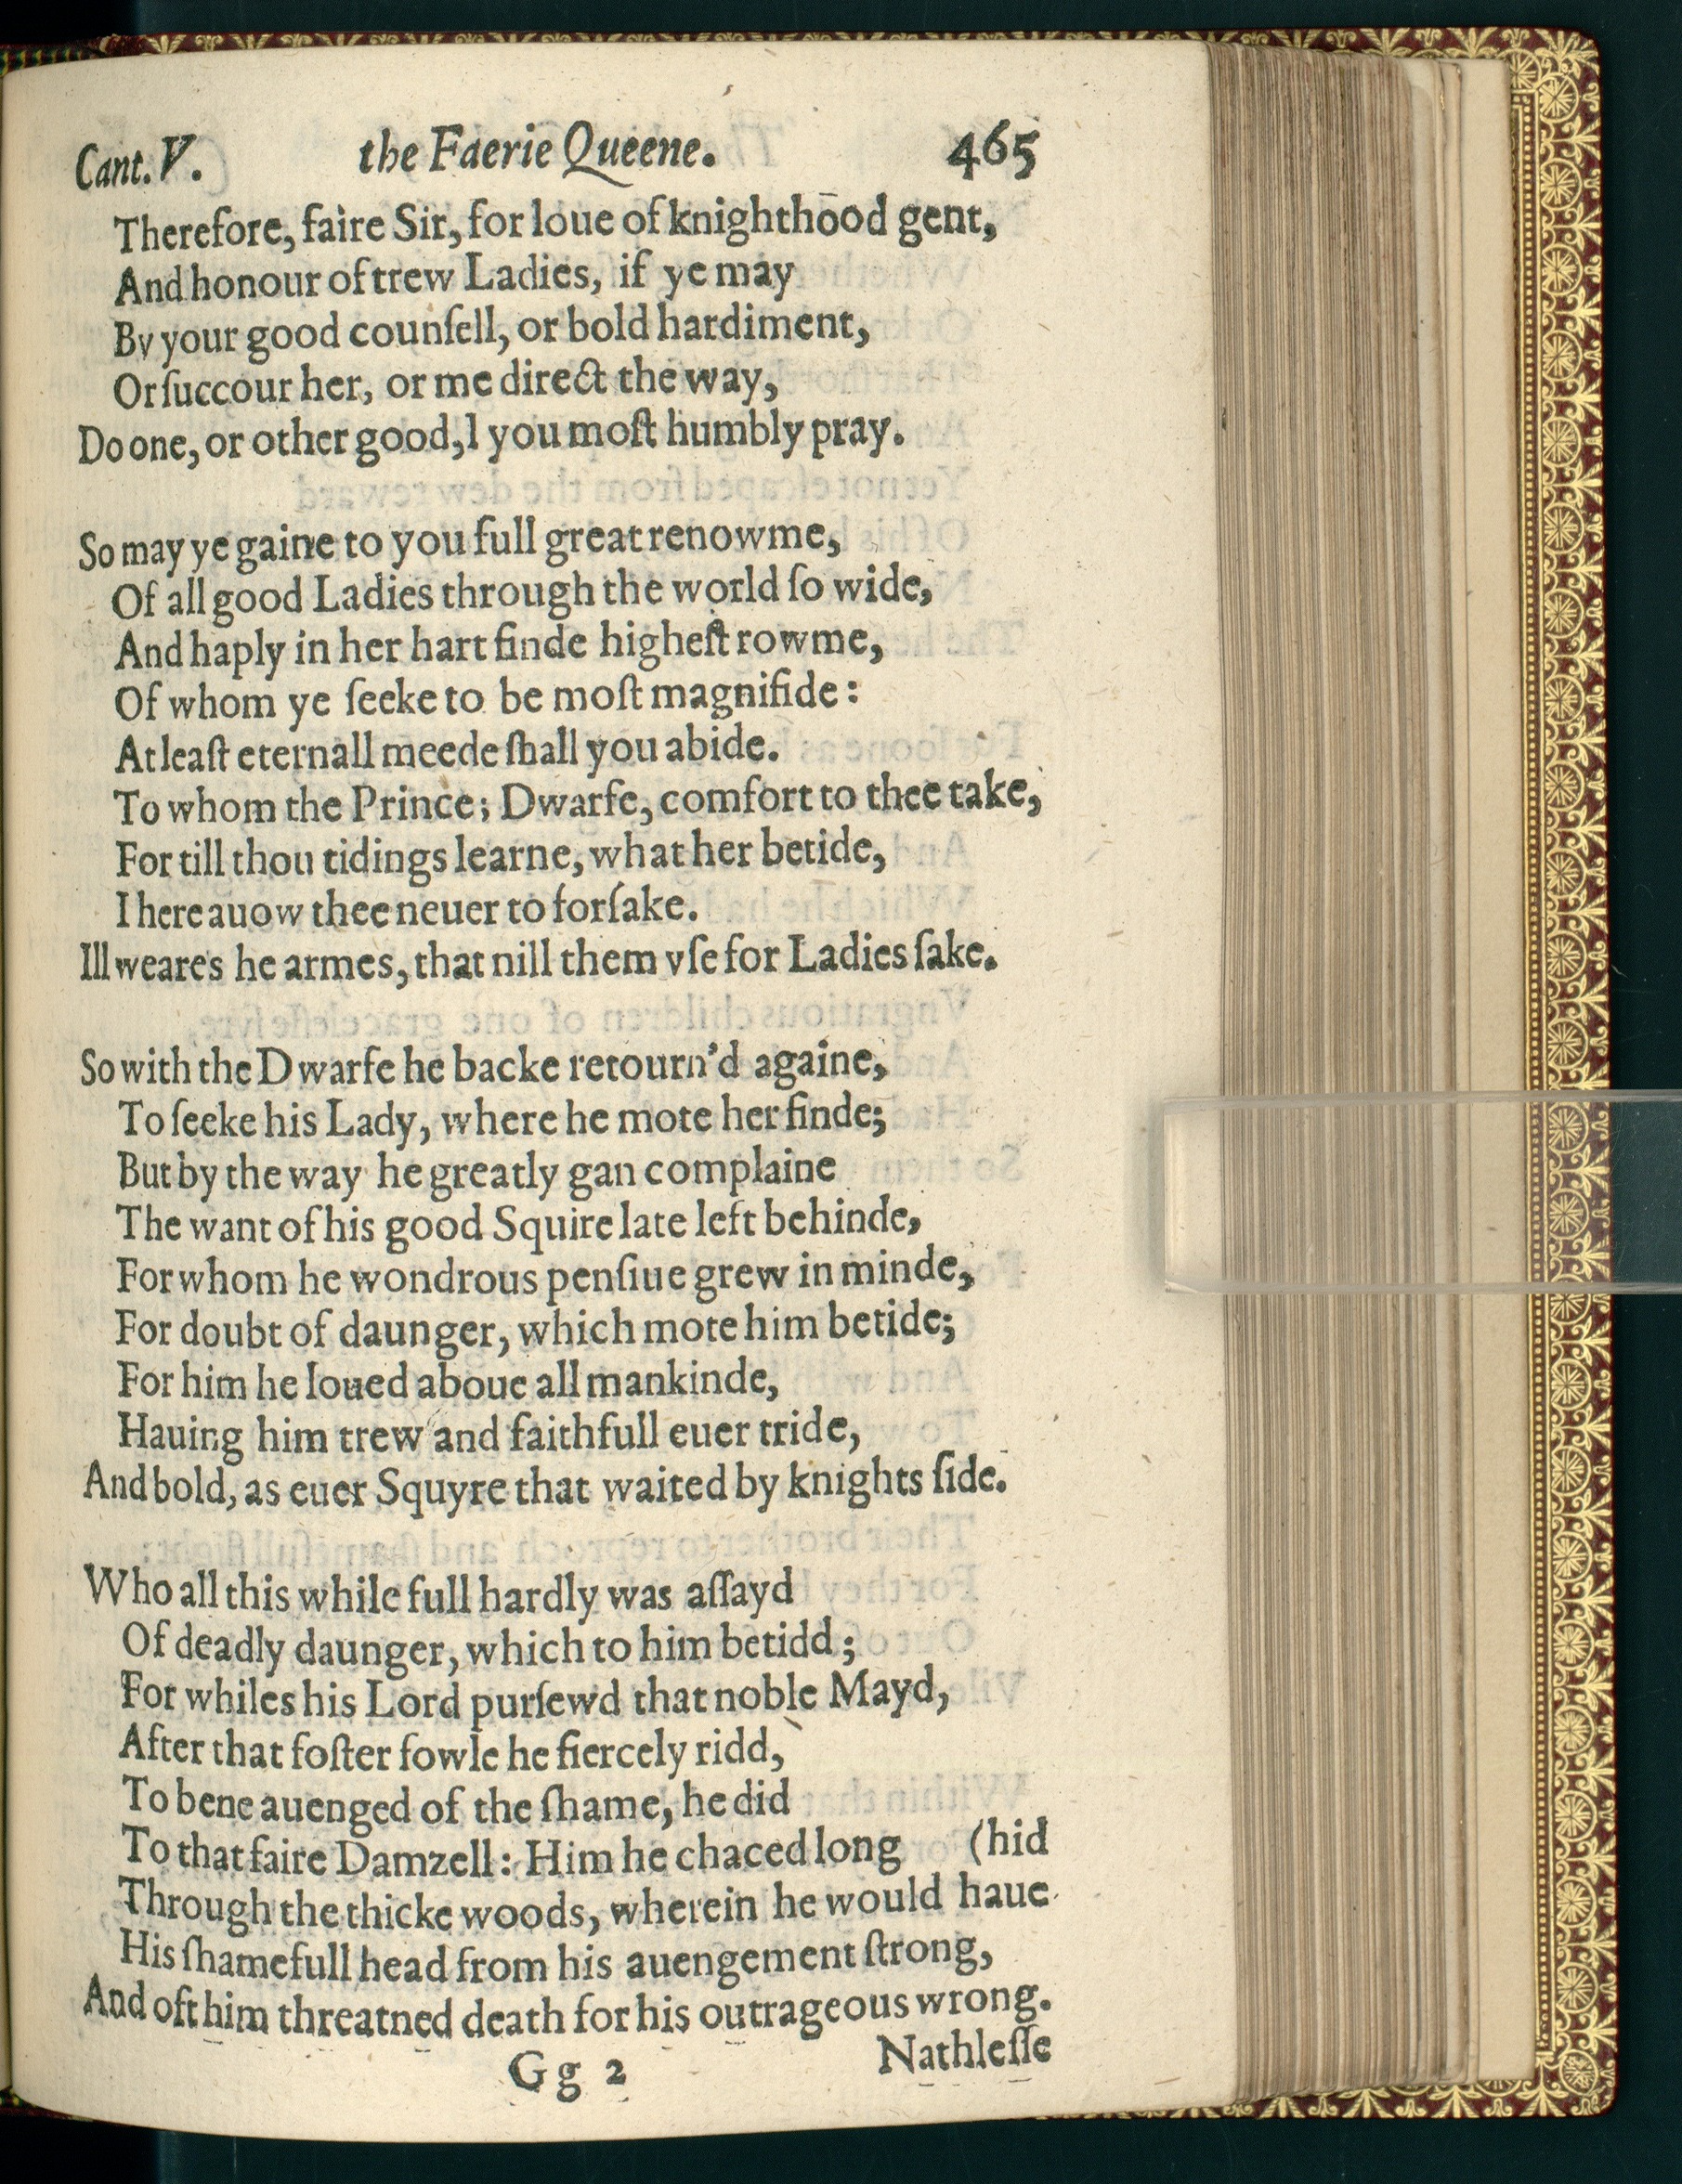 Cant. V. the Faerie Queene. 465
Therefore, faire Sir, for loue of knighthood gent,
And honour of trew Ladies, if ye may
By your good counſell, or bold hardiment,
Or ſuccour her, or me direct the way,
Do one, or other good, I you moſt humbly pray.
So may ye gaine to you full great renowme,
Of all good Ladies through the world ſo wide,
And haply in her hart finde higheſt rowme,
Of whom ye ſeeke to be moſt magnifide:
At leaſt eternall meede ſhall you abide.
To whom the Prince; Dwarfe, comfort to thee take,
For till thou tidings learne, what her betide,
I here auow thee neuer to forſake.
Ill weares he armes, that nill them vſe for Ladies ſake.
So with the Dwarfe he backe retourn'd againe,
To ſeeke his Lady, where he mote her finde;
But by the way he greatly gan complaine
The want of his good Squire late left behinde,
For whom he wondrous penſiue grew in minde,
For doubt of daunger, which mote him betide;
For him he loued aboue all mankinde,
Hauing him trew and faithfull euer tride,
And bold, as euer Squyre that waited by knights ſide.
Who all this while full hardly was aſſayd
Of deadly daunger, which to him betidd;
For whiles his Lord purſewd that noble Mayd,
After that foſter fowle he fiercely ridd,
To bene auenged of the ſhame, he did
To that faire Damzell: Him he chaced long (hid
Through the thicke woods, wherein he would haue
His ſhamefull head from his auengement ſtrong,
And oft him threatned death for his outrageous wrong.
Gg 2 Nathleſſe